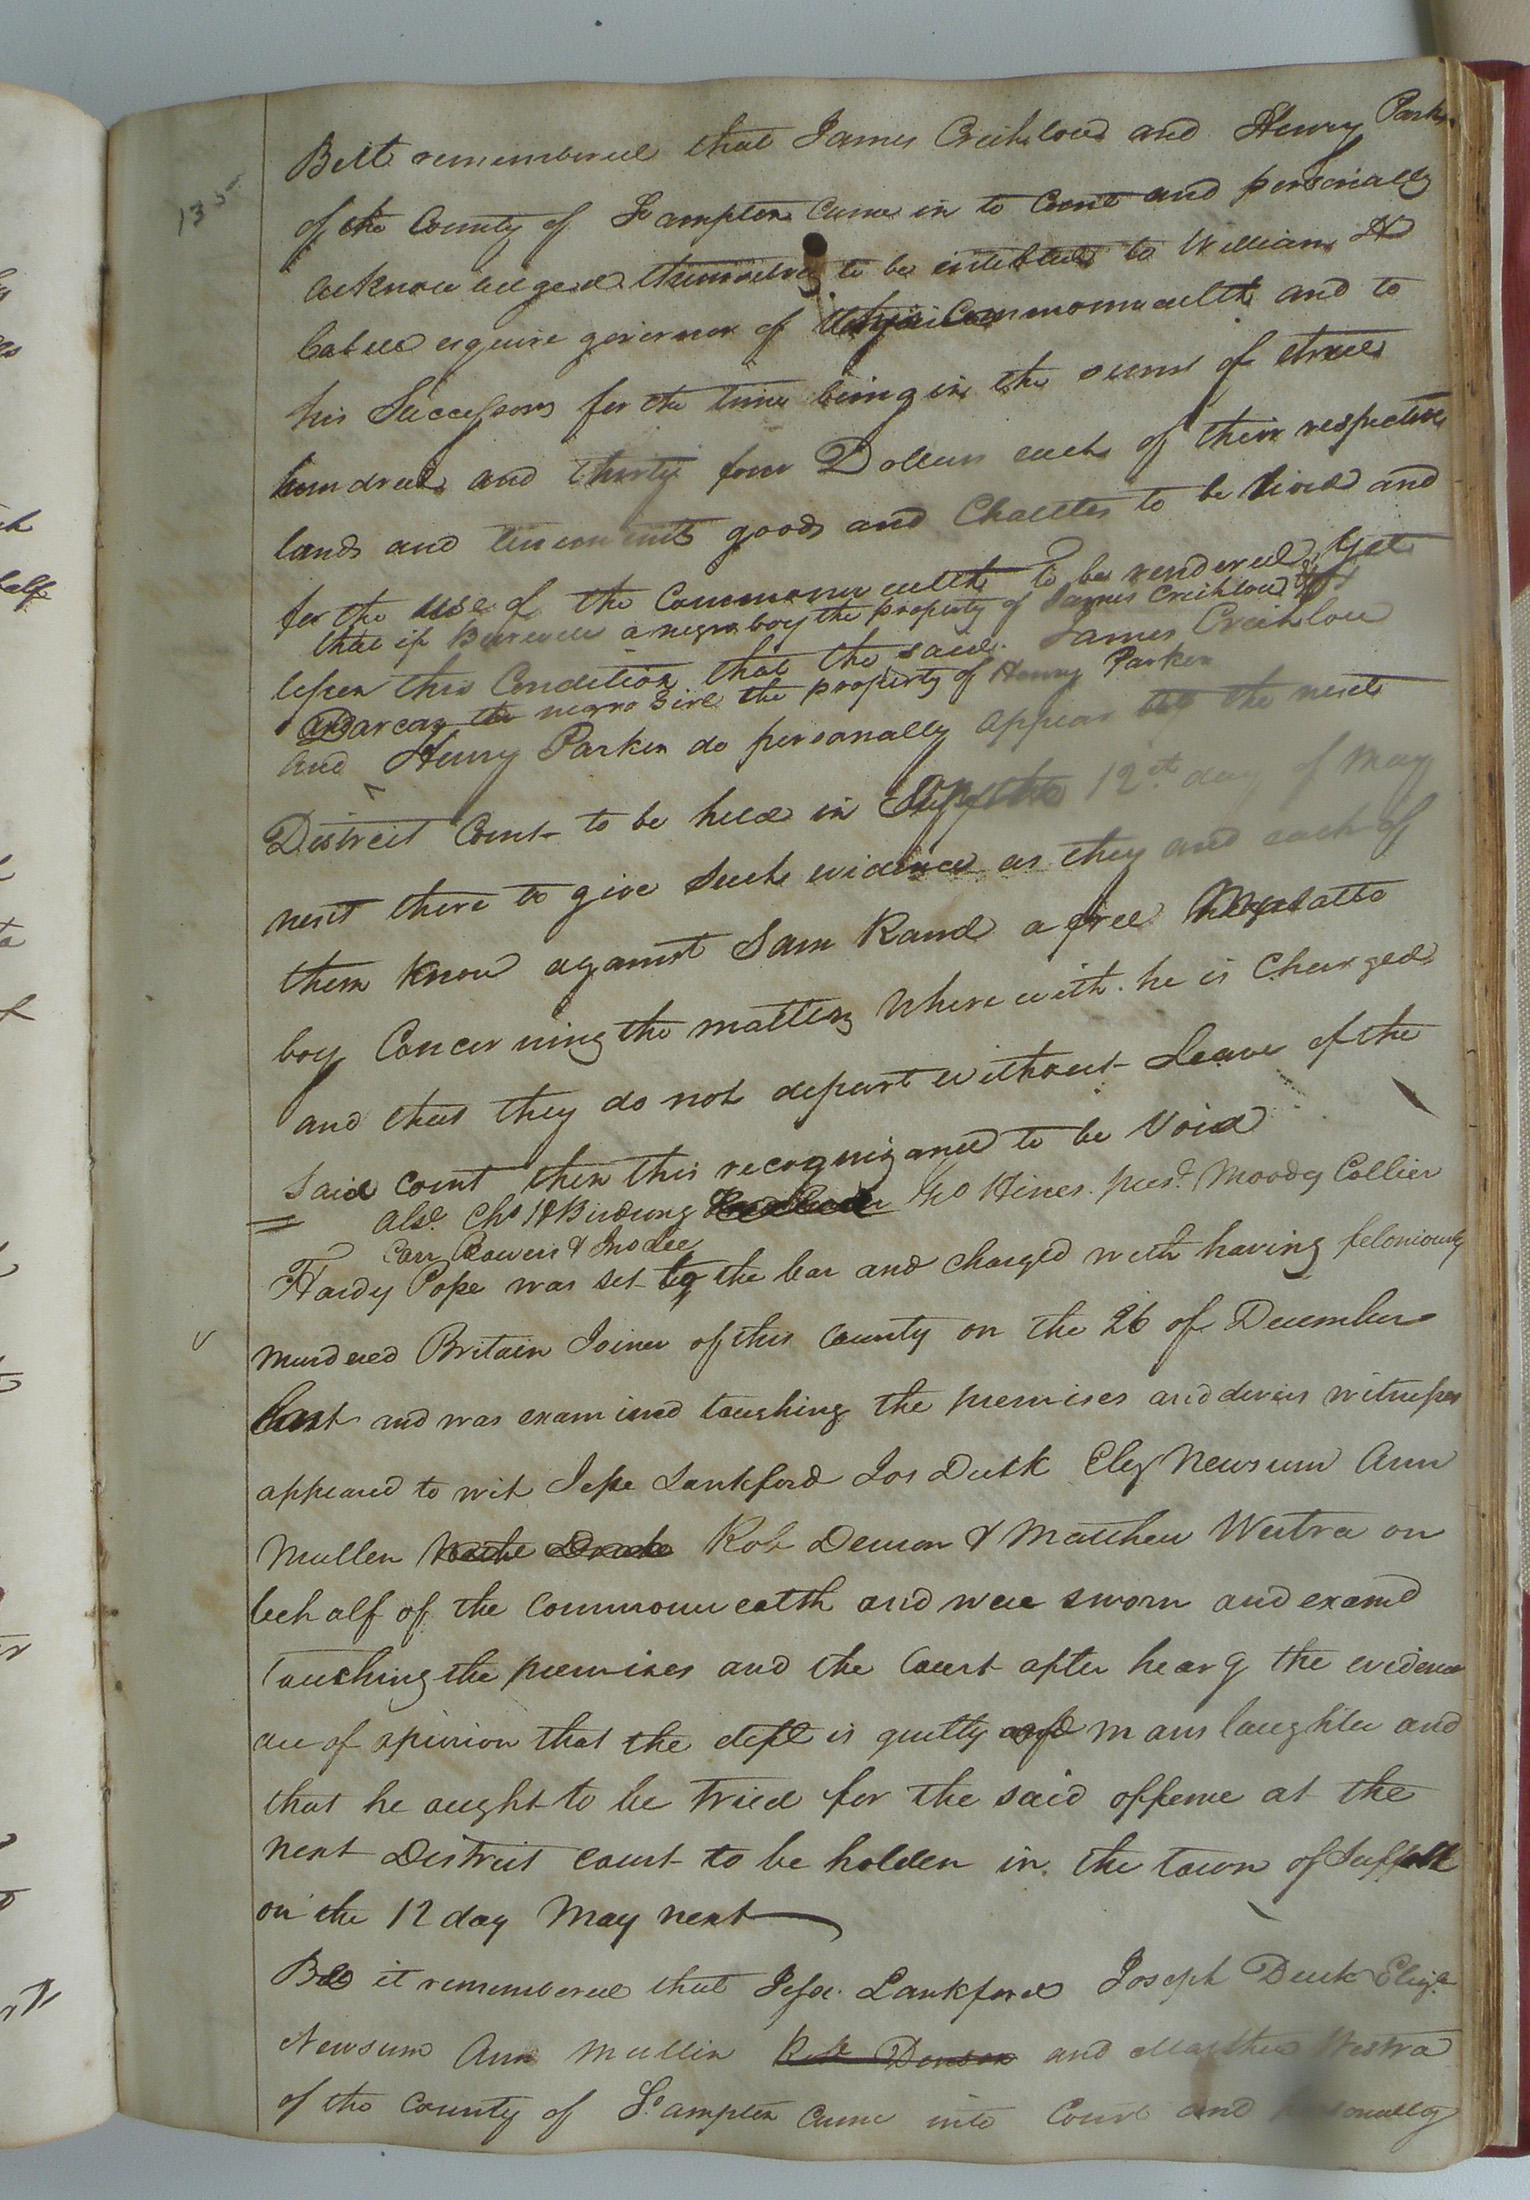 135
Be it remembered that James Crichlow and Henry Parker
of the County of S.ampton came in to Court and personally
acknowledged themselves to be indebted to William H
Cabell esquire governor of this Commonwealth and to
his Successors for the time being in the sum of three
hundred and thirty four Dollars each of their respective
lands and tenements goods and Chattles to be livied and
for the use of the Commonwealth to be rendered Yet
that if Burwell a negro boy the property of James Crichlow
upon this Condition that the said James Crichlow
and Darcas the negro Girl the property of Henry Parker
and Henry Parker do personally appear the next
District Court to be held in 12th day of May
next there to give such evidence as they and each of
them know against Sam Rand a free Mulatto
boy Concerning the matters Wherewith he is Charged
and that they do not depart without Leave of the
said court then this recognizance to be Void
abst. Chs H Birdsong Hines prest. Moody Collier
Carr Bowers & Jno Lee
Hardy Pope was set to the bar and charged with having feloniously
murdered Britain Joiner of this County on the 26 of December
last and was examined touching the premises and divers witnesses
appeared to wit Jesse Lankford Jos Duck Eley Newsum Ann
Mullen Rob Denson & Matthew Westra on
behalf of the Commonwealth and were sworn and examd
touching the premises and the Court after hearg the evidence
are of opinion that the deft is guilty of manslaughter and
that he aught to be tried for the said offence at the
next District court to be holden in the town of Suffolk
on the 12 day May next
Be it remembered that Jesse Lankford Joseph Duck Eliza
Newsum Ann Mullin Rob Denson and Matthew Westra
of the County of S.ampton came into Court and personally